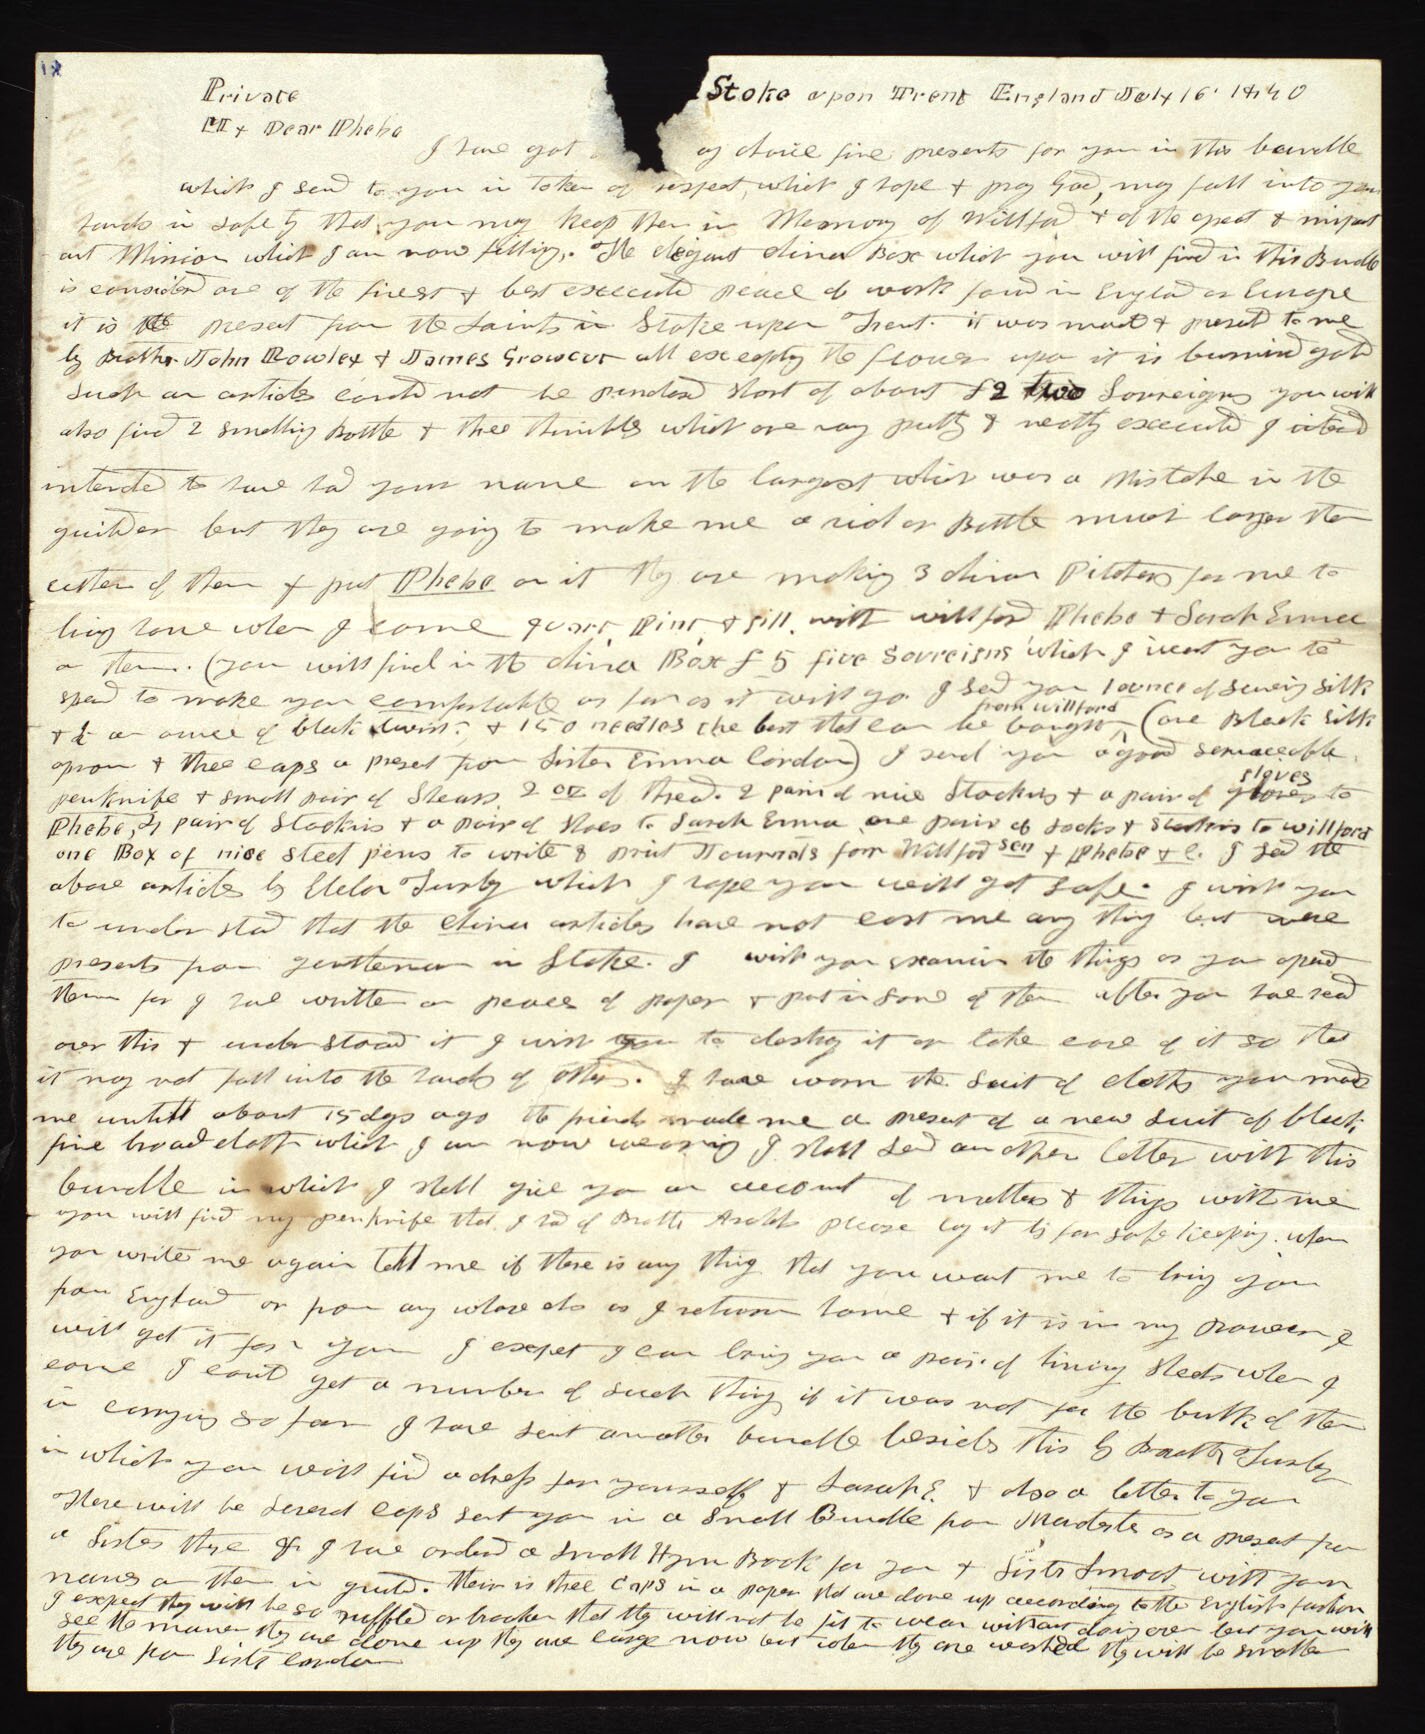 Private Stoke upon Trent England July 16. 1840
My Dear Phebe
I have got choice fine presents for you in this bundle
which I send to you in token of respect, which I hope & pray God, may fall into your
hands in safety that you may keep them in Memory of Willford & of the great & import
ant Mission which I am now filling. The elegant china Box which you will find in this Bundle
is considerd one of the finest & best executed peace of work found in England or Europe
it is the present from the Saints in Stoke upon Trent. it was made & presetd to me
by Brother John Rowley & James Growcut all excepting the flower upon it is burnind gold
Such an article could not be purchased short of about £2 two Sovreigns you will
also find 2 smelling Bottle & three thimbles which are vary pretty & neatly executed I intend
intended to have had your name on the largest which was a Mistake in the
guilder but they are going to make me a not or Bottle much larger than
either of them & put Phebe on it they are making 3 china Pitchers for me to
bring home when I come Quart, Pint, & gill, with willford Phebe & Sarah Emma
on them. (you will find in the china Box £5 five Sovreigns which I want you to
spend to make you comfortable as far as it will go I send you 1 ounce of sewing silk
& ½ an ounce of black twist. & 150 needles the best that can be bought from willford (one Black Silk
apron & three caps a preset from Sister Emma Cordon) I send you a good servicable
penknife & small pair of Shears, 2 oz of thread. 2 pair of nice Stockins & a pair of gloves gloves to
Phebe, 2 pair of Stockins & a pair of shoes to Sarah Emma one pair of socks & Stockins to willford
one Box of nice steel pens to write & print Journals for Willford sen & Phebe & c. I send the
above articles by Elder Turley which I hope you will get safe. I wish you
to understand that the China articles have not cost me any thing but were
presents from gentlemen in Stoke. I wish you examin the things as you opend
them for I have written on peaces of paper & put in some of them after you have read
over this & understood it I wish you to destroy it or take care of it so that
it may not fall into the hands of others. I have worn the suit of cloths you made
me untill about 15 days ago the friends made me a present of a new suit of black
fine broad cloth which I am now wearing I shall send another letter with this
bundle in which I shall give you an account of matters & things with me
you will find my penknife that I had of Brother please lay it by for safe keeping. when
you write me again tell me if there is any thing that you want me to bring you
from England or from any whare els as I return home & if it is in my power I
will get it for you I expet I can bring you a pair of lining sheets when I
come I could get a number of such things if it was not for the bulk of them
in carrying so far I have sent another bundle besides this by Brother Turley
in which you will find a dress for yourself & Sarah E. & also a letter to you
There will be several caps sent you in a small Bundle from Manchester as a present from
a Sister there & I have orderd a small Hymn Book for you & Sister Smoot with your
names on them in guild. their is three caps in a paper that are done up according to the English fashion
I expect they will be so ruffled or broaken that they will not be fit to wear without doing over but you will
see the manner they are done up they are large now but when they are washed they will be smaller
they are from Sister Cordon